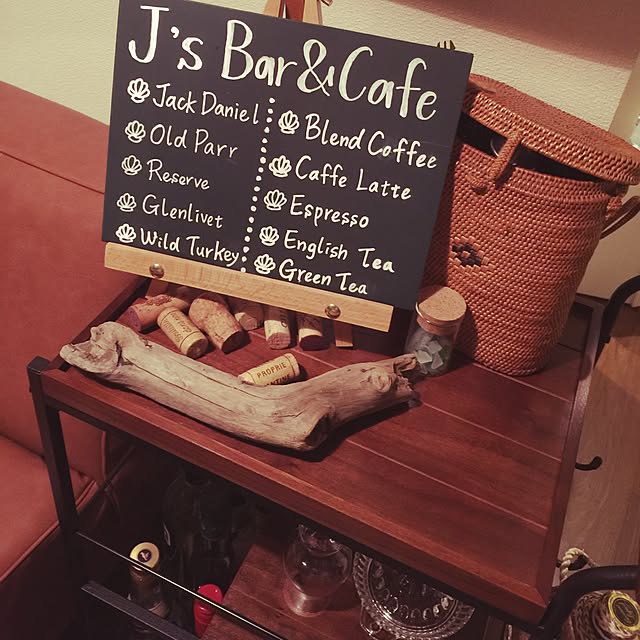 J's Bar & Cafe
Jack Daniel
Old Parr
Reserve
Glenlivet
Wild Turkey
Blend Coffee
Caffe Latte
Espresso
English Tea
Green Tea
PROPRIE